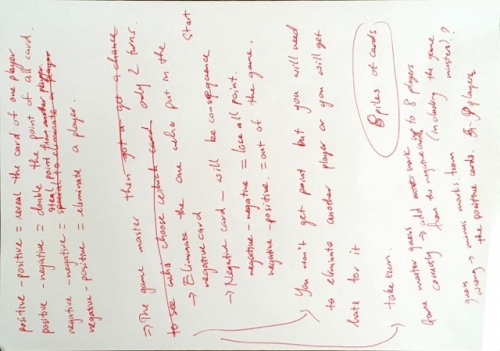 positive - positive = reveal the card of one player
positive - negative = double the point of all card.
steal point from another player
negative - negative =
negative - positive = eliminate a player.
⇒ The game master then got a get a chance
to see who choose which card only 2 turns.
→ Eliminate the one who put in the Start
negative card
→ Negative card - will be consequence
negative - negative = lose all point.
negative - positive = out of the game.
You don't get point but you will need
to eliminate another player or you will get
hate for it
8 piles of cards
take turn.
Game master guess → add up to 8 players
correctly from the negative cards (including the game
master)?
guess wrong → minus marks from players
the positive cards.